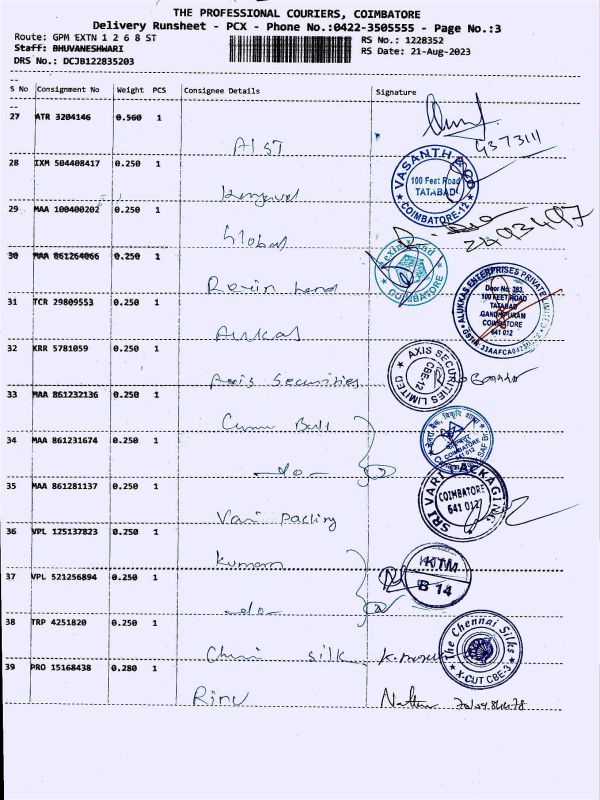 THE PROFESSIONAL COURIERS, COIMBATORE
Delivery Runsheet - PCX - Phone No.:0422-3505555 - Page No.:3
Route: GPM EXTN 1 2 6 8 ST
RS No.: 1228352
Staff: BHUVANESHWARI
RS Date: 21-Aug-2023
DRS No.: DCJB122835203
S No Consignment No Weight PCS Consignee Details Signature
27 ATR 3204146 0.560 1
AIST
437311
28 IXM 504408417 0.250 1
VASANTH & CO
100 Feet Road
TATABAD
COIMBATORE-12
29 MAA 100400202 0.250 1
Global
30 MAA 861264066 0.250 1
COIMBATORE
31 TCR 29809553 0.250 1
ALUKKAS ENTERPRISES PRIVATE LIMITED
Door No: 383,
100 FEET ROAD
TATABAD
GANDHIPURAM
COIMBATORE
641 012
32 KRR 5781059 0.250 1
Axis Securities
AXIS SECURITIES LIMITED
CBE-12
33 MAA 861232136 0.250 1
34 MAA 861231674 0.250 1
-do-
COIMBATORE
35 MAA 861281137 0.250 1
Vari Packing
SRI VARI PACKAGING
COIMBATORE
641 012
36 VPL 125137823 0.250 1
KITM
B 14
37 VPL 521256894 0.250 1
-do-
38 TRP 4251820 0.250 1
silk
The Chennai Silks
X-CUT CBE-3
39 PRO 15168438 0.280 1